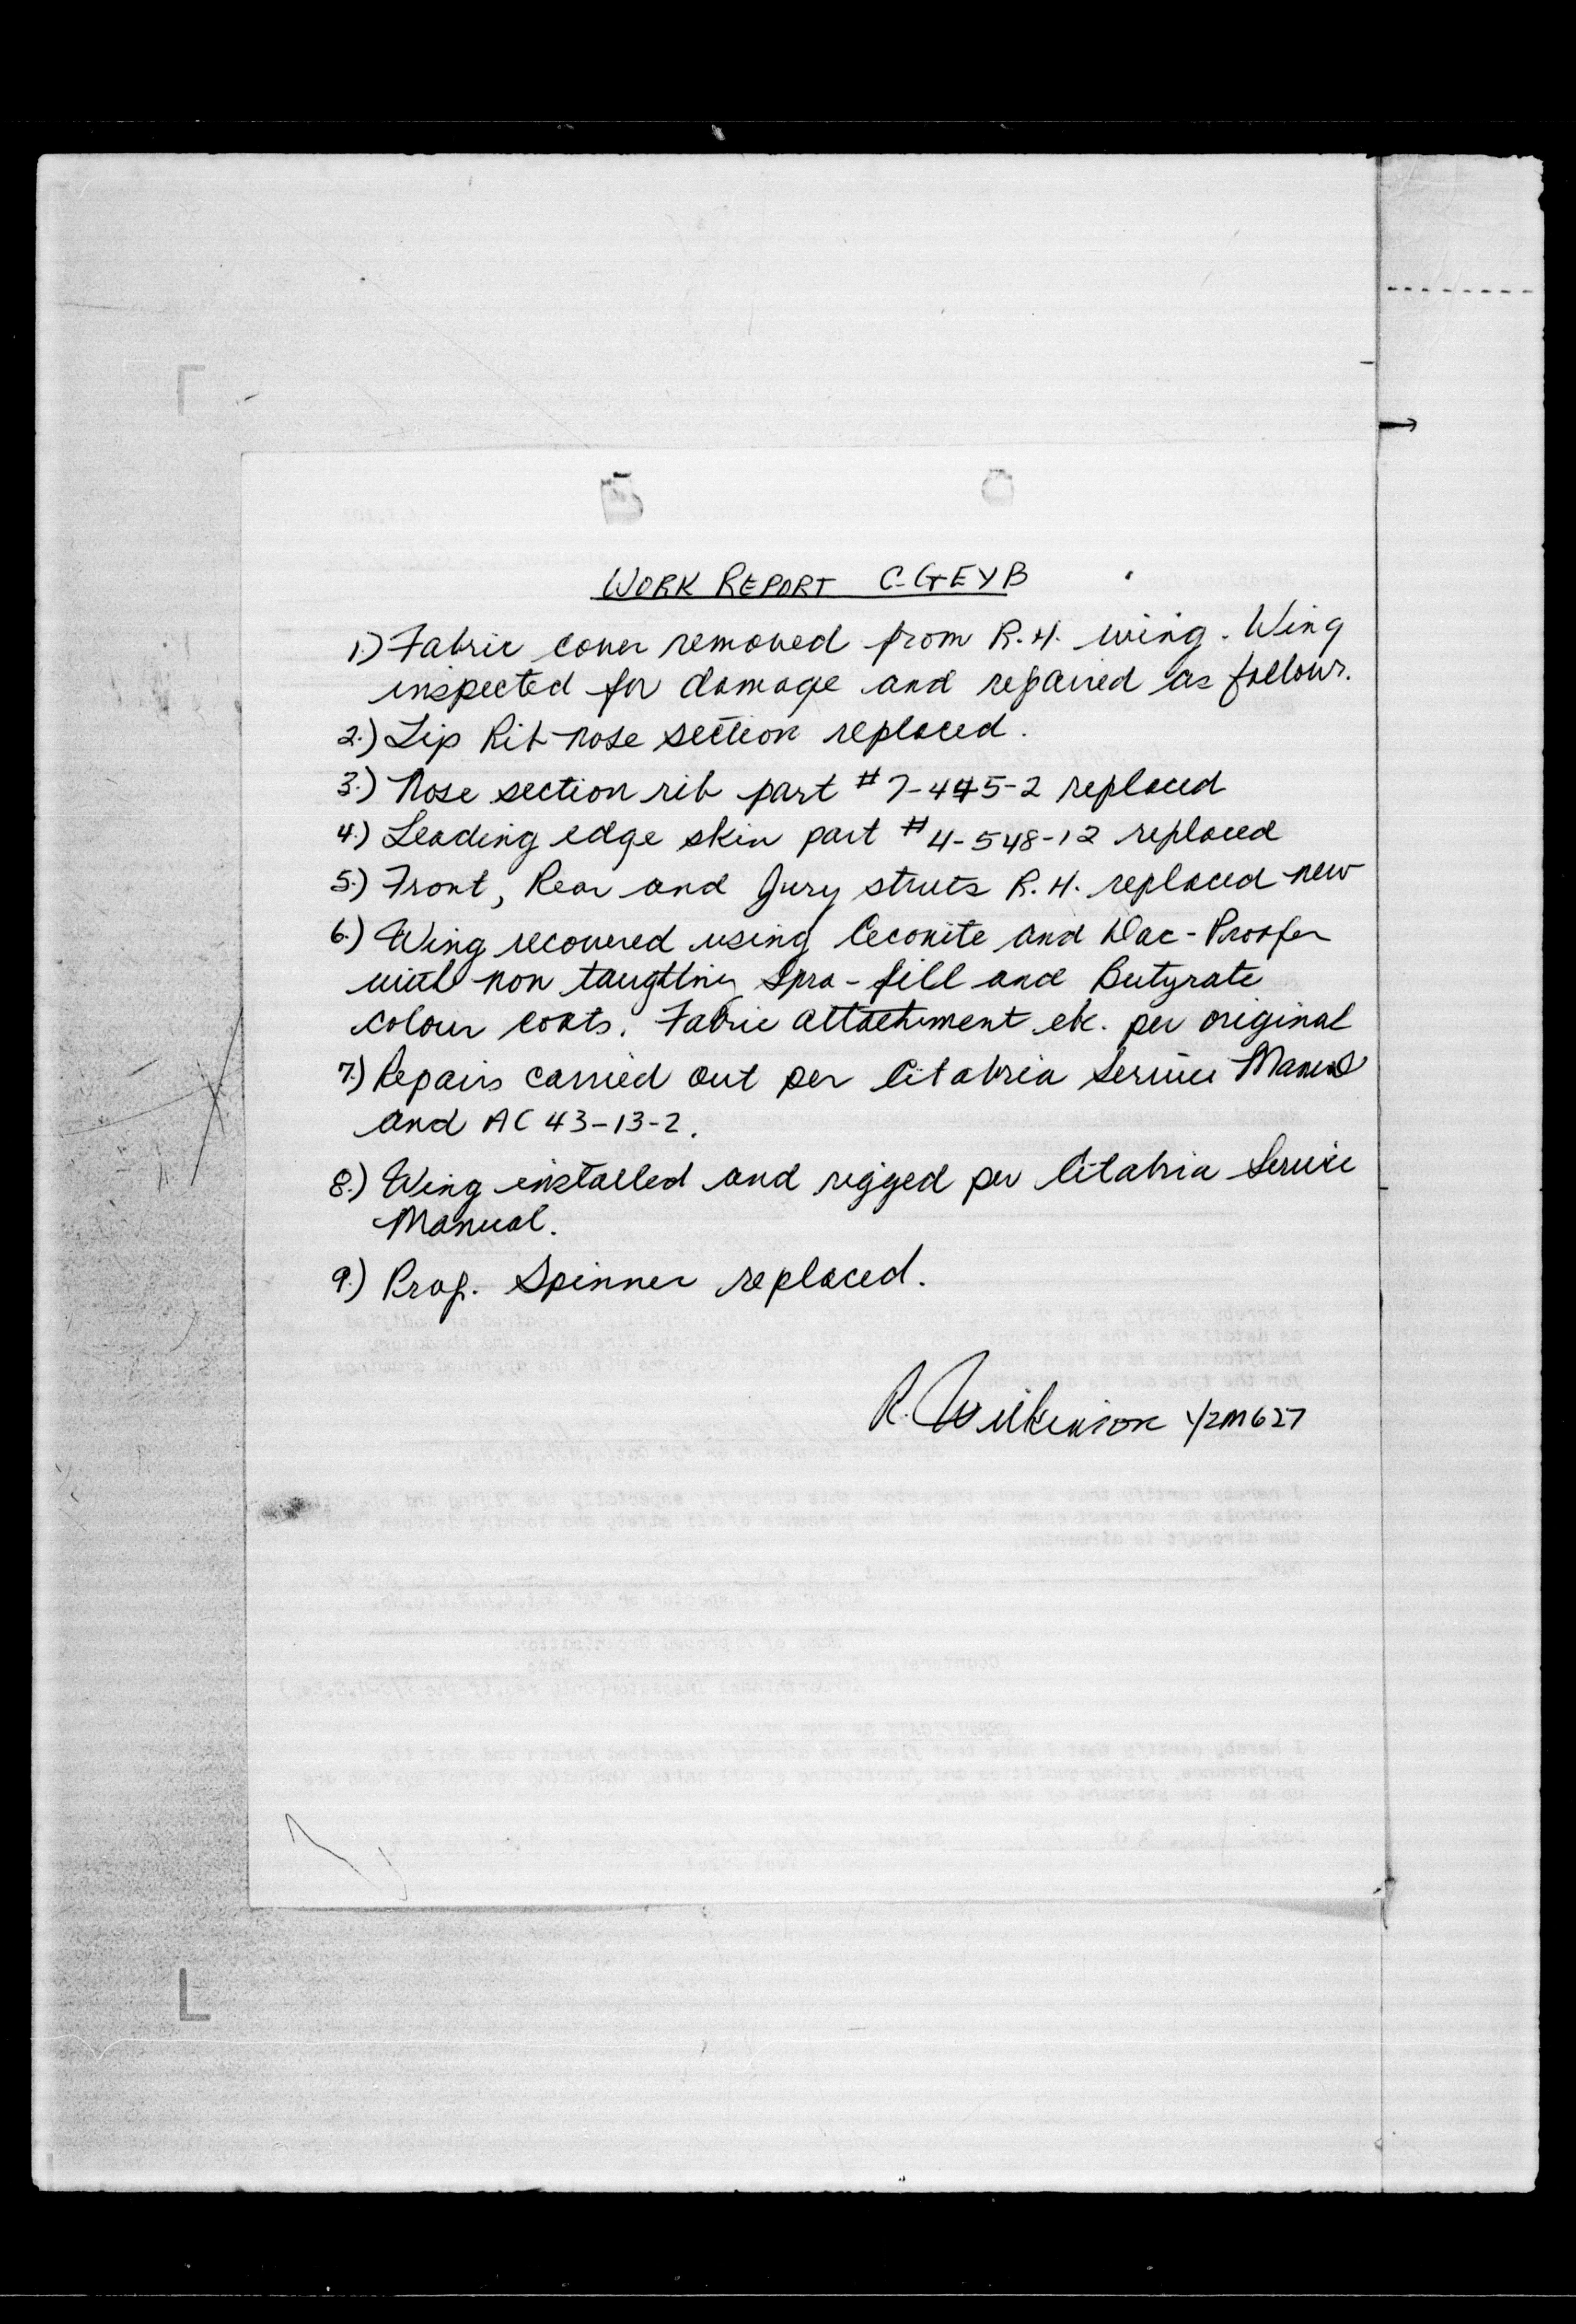 WORK REPORT C-GEYB
1.) Fabric cover removed from R.H. wing. Wing
inspected for damage and repaired as follows.
2.) Tip Rib nose section replaced.
3.) Nose section rib part #7-445-2 replaced
4.) Leading edge skin part #4-548-12 replaced
5.) Front, Rear and Jury struts R.H. replaced new
6.) Wing recovered using Ceconite and Dac-Proofer
with non taughtning Spra-fill and Butyrate
colour coats. Fabric attachment etc. per original
7.) Repairs carried out per Citabria Service Manual
and AC 43-13-2.
8.) Wing installed and rigged per Citabria Service
Manual.
9.) Prop. Spinner replaced.
R. Wilkinson YZM627